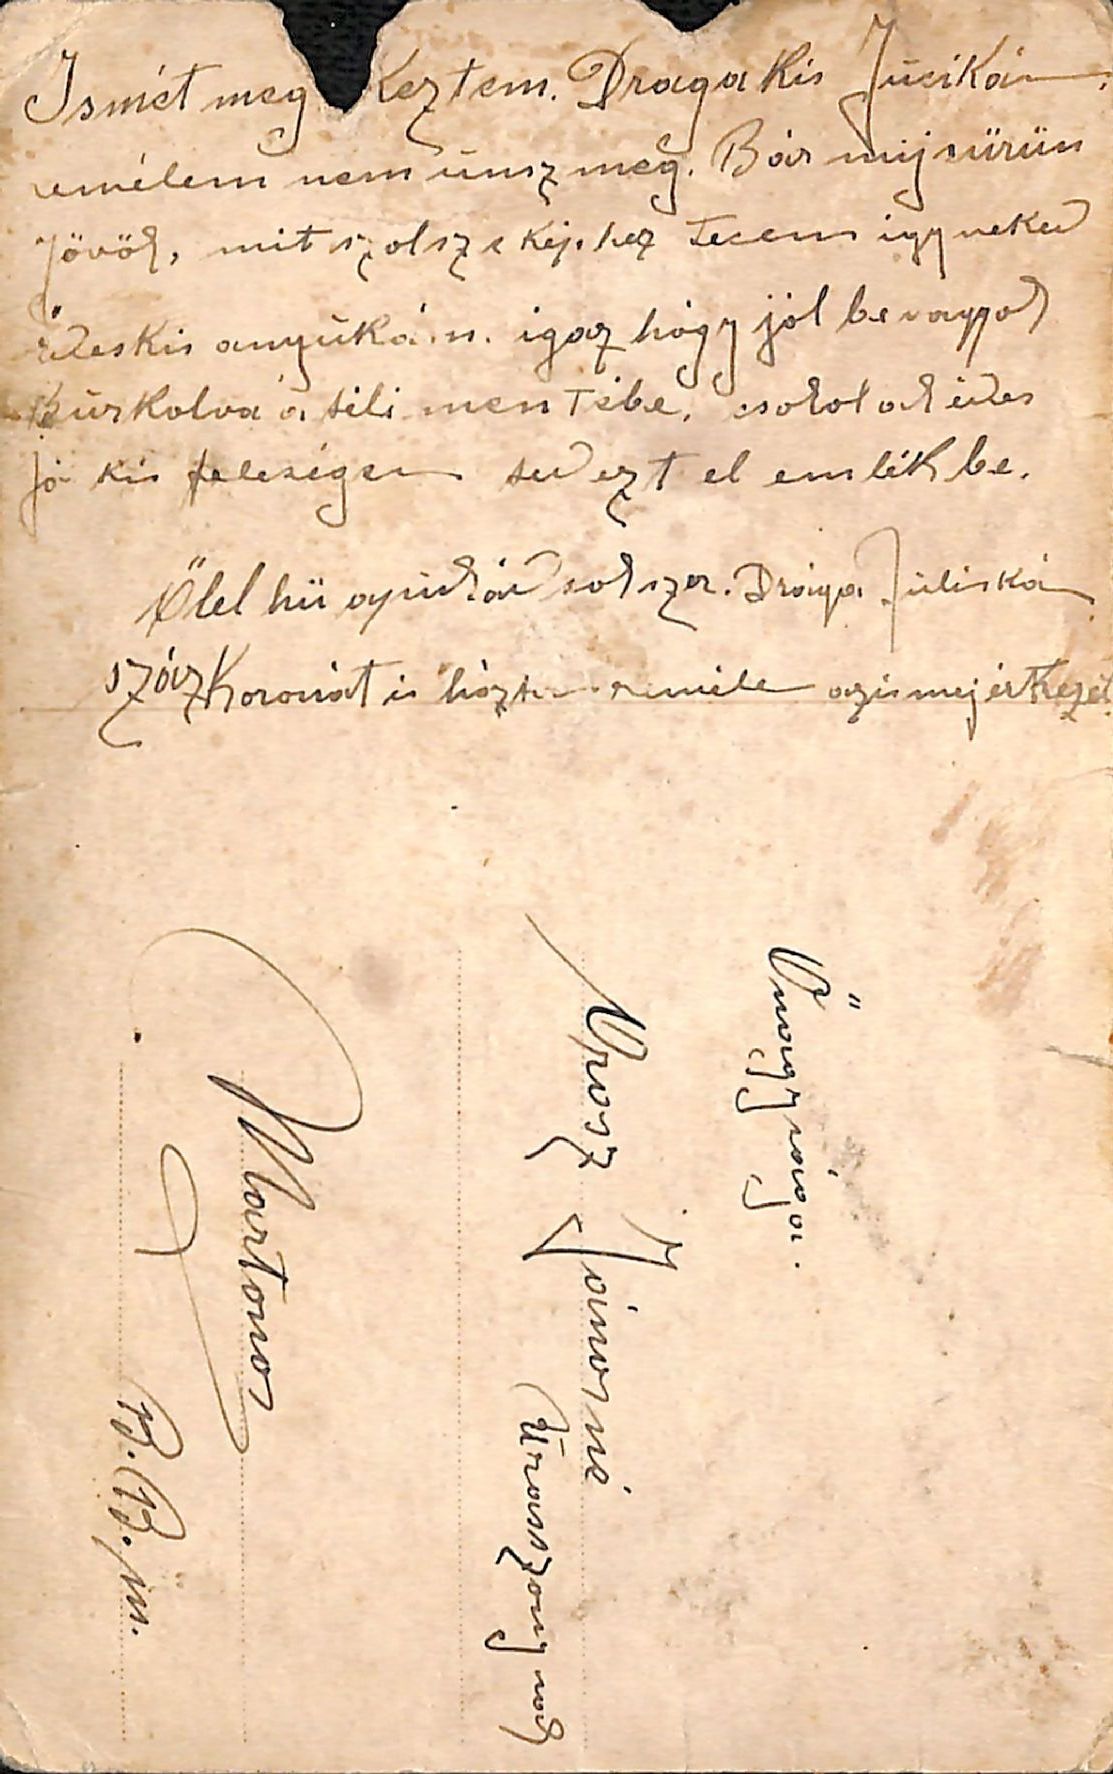 Ismét meg keztem. Draga kis Jucikám.
remélem nem unsz meg. Bár mij sürün
jövök, mit szolsz e kép. hez tecem igy neked
édes kis anyukám. igaz hogy jól be vagyok
burkolva a téli mentébe. csokol ak édes
jó kis feleségem ted ezt el emlék be.
Ölel hü apukád sokszor. Drága Juliskám
száz koronát is hozta remélem azis mejérkezet
Őnagysága.
Mrosz Jánosné
Úrasszonynak
Martonos
B. B. m.